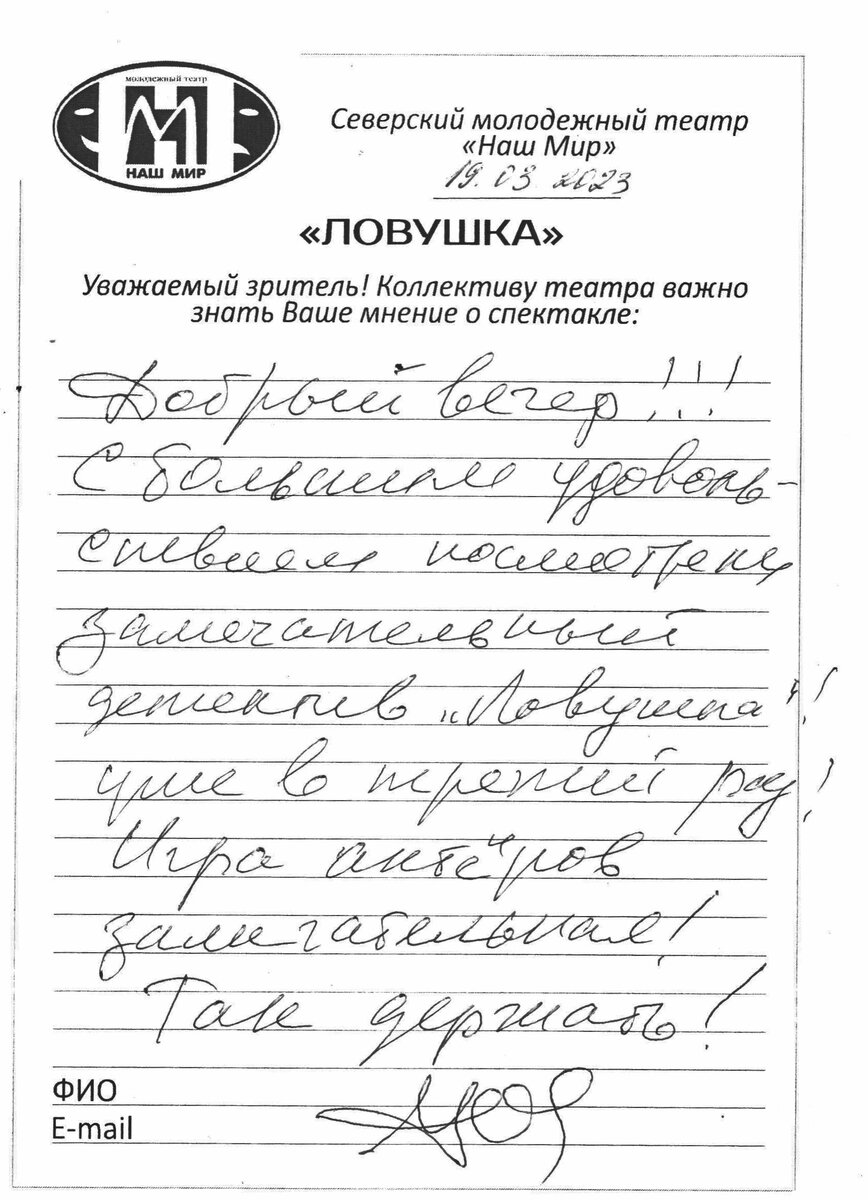 молодежный театр
НАШ МИР
Северский молодежный театр
«Наш Мир»
19.03.2023
«ЛОВУШКА»
Уважаемый зритель! Коллективу театра важно
знать Ваше мнение о спектакле:
Добрый вечер!!!
С большим удоволь-
ствием посмотрели
замечательный
детектив „Ловушка"!
уже в третий раз!
Игра актёров
замечательная!
Так держать!
ФИО
E-mail